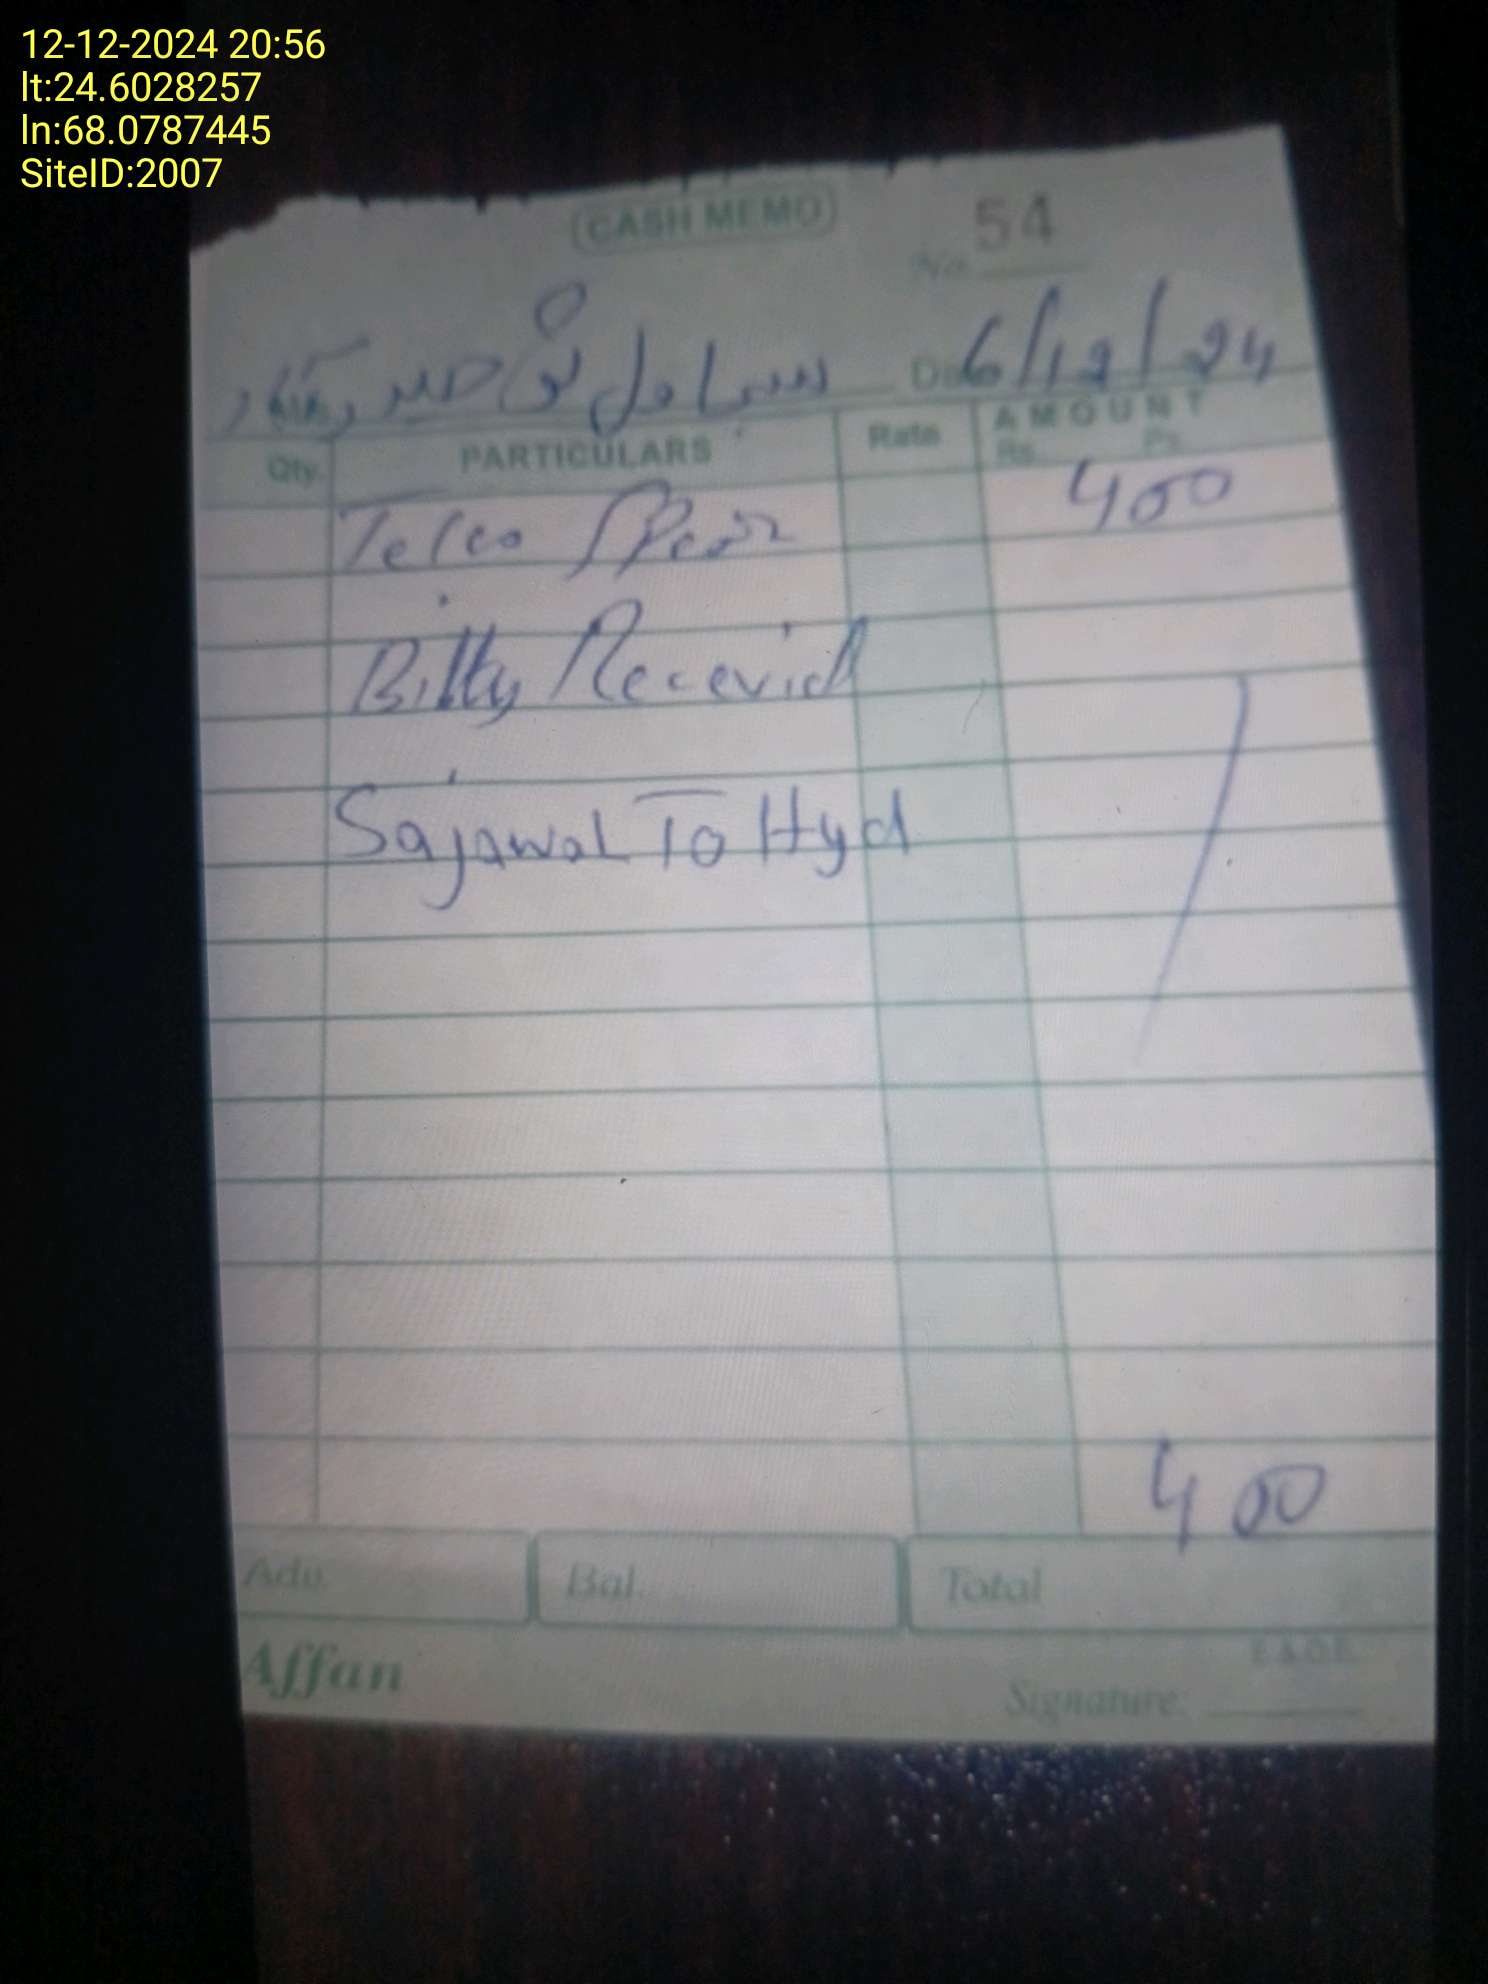 12-12-2024 20:56
lt:24.6028257
ln:68.0787445
SiteID:2007
CASH MEMO
No. 54
سجاول ٹو حیدرآباد Date 6/12/24
Qty. PARTICULARS Rate AMOUNT
Rs. Ps.
Telco 400
Bilty Recevid
Sajawal To Hyd
400
Adv. Bal. Total
E.&.O.E.
Affan Signature: